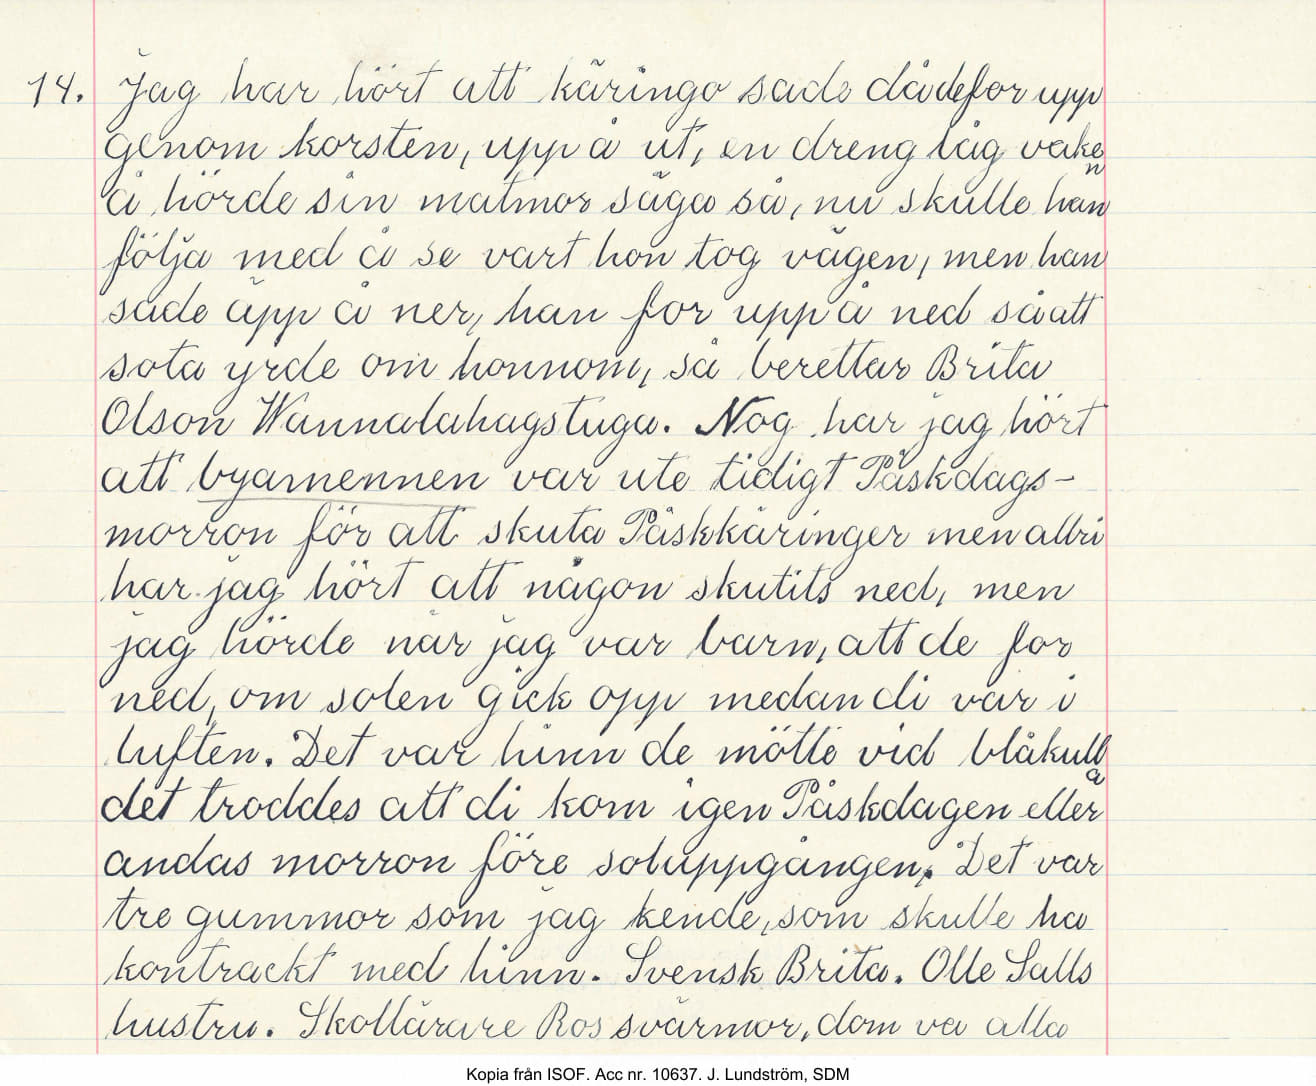 14. Jag har hört att käringa sade då de for upp
genom korsten, upp å ut, en dreng låg vaken
å hörde sin matmor säga så, nu skulle han
följa med å se vart hon tog vägen, men han
sade äpp å ner, han for upp å ned så att
sota yrde om honnom, så berettar Brita
Olson Wannalahagstuga. Nog har jag hört
att byamennen var ute tidigt Påskdags-
morron för att skuta Påskkäringer men allri
har jag hört att någon skutits ned, men
jag hörde när jag var barn, att de for
ned, om solen gick opp medan di var i
luften. Det var hinn de mötte vid blåkulla
det troddes att di kom igen Påskdagen eller
andas morron före soluppgången. Det var
tre gummor som jag kende, som skulle ha
kontrackt med hinn. Svensk Brita. Olle Salls
hustru. Skollärare Ros svärmor, dom va alla
Kopia från ISOF. Acc nr. 10637. J. Lundström, SDM